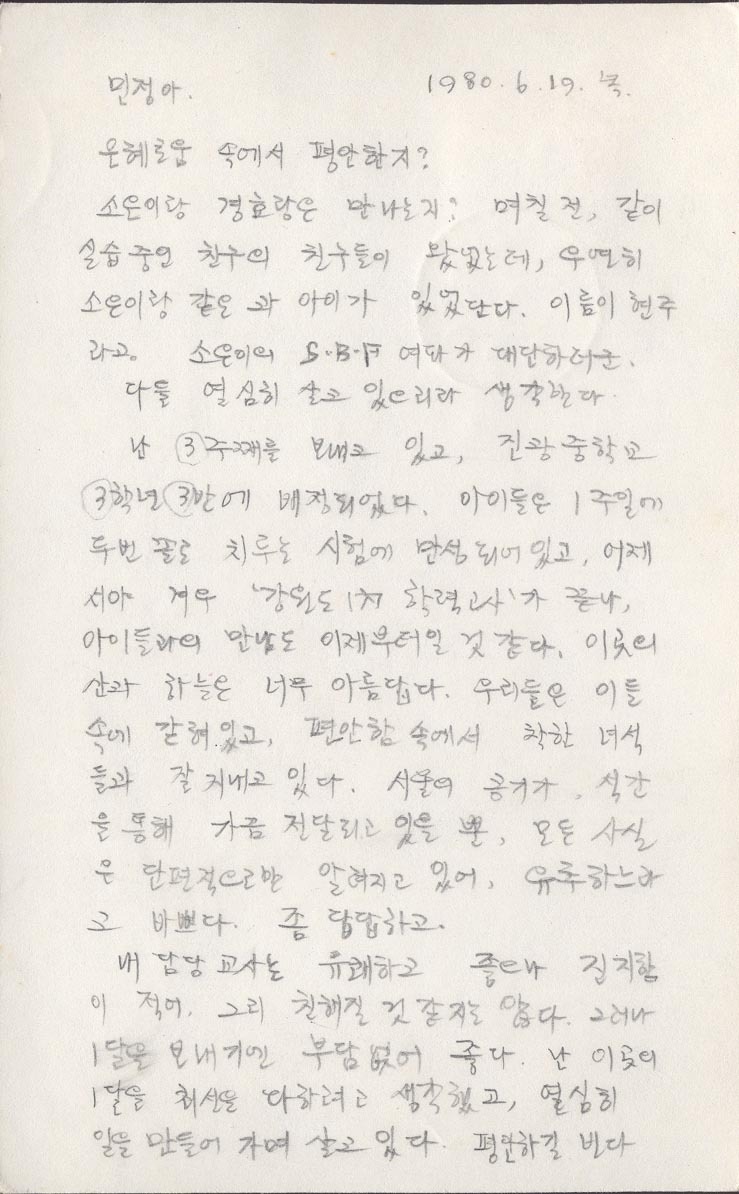 민정아. 1980. 6. 19. 목.
은혜로움 속에서 평안한지?
소은이랑 경효랑은 만나는지? 며칠 전, 같이
실습중인 친구의 친구들이 왔었는데, 우연히
소은이랑 같은 과 아이가 있었단다. 이름이 현주
라고. 소은이의 S.B.F 여파가 대단하더군.
다들 열심히 살고 있으리라 생각한다.
난 ③주째를 보내고 있고, 진광중학교
③학년 ③반에 배정되었다. 아이들은 1주일에
두번 꼴로 치루는 시험에 만성되어 있고, 어제
서야 겨우 '강원도 1차 학력고사'가 끝나,
아이들과의 만남도 이제부터일 것 같다. 이곳의
산과 하늘은 너무 아름답다. 우리들은 이들
속에 갇혀있고, 편안함 속에서 착한 녀석
들과 잘 지내고 있다. 서울의 공기가, 석간
을 통해 가끔 전달되고 있을 뿐, 모든 사실
은 단편적으로만 알려지고 있어, 유추하느라
고 바쁘다. 좀 답답하고.
내 담당 교사는 유쾌하고 좋으나 진지함
이 적어, 그리 친해질 것 같지는 않다. 그러나
1달을 보내기엔 부담없어 좋다. 난 이곳의
1달을 최선을 다하려고 생각했고, 열심히
일을 만들어 가며 살고 있다. 평안하길 빈다